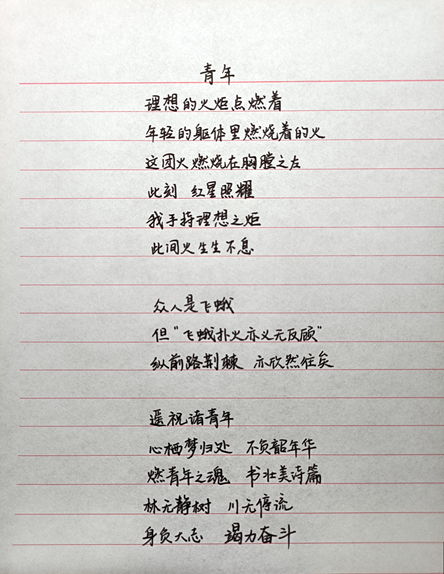 青年
理想的火炬点燃着
年轻的躯体里燃烧着的火
这团火燃烧在胸膛之左
此刻 红星照耀
我手持理想之炬
此间火生生不息
众人是飞蛾
但“飞蛾扑火亦义无反顾”
纵前路荆棘 亦欣然往矣
遥祝诸青年
心栖梦归处 不负韶年华
燃青年之魂 书壮美诗篇
林无静树 川无停流
身负大志 竭力奋斗